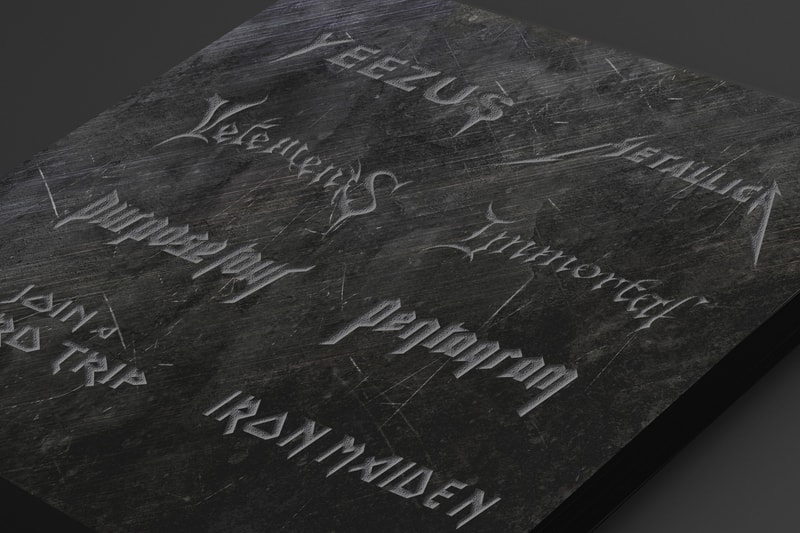 YEEZUS
Vetements
METALLICA
purpose tour
Immortal
JOIN A
RD TRIP
pentagram
IRON MAIDEN